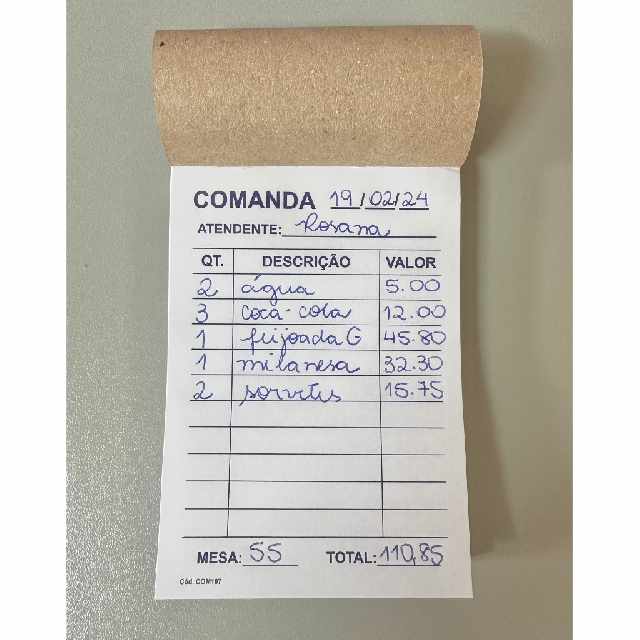 COMANDA 19/02/24
ATENDENTE: Rosana
QT. DESCRIÇÃO VALOR
2 água 5.00
3 coca-cola 12.00
1 feijoada G 45.80
1 milanesa 32.30
2 sorvetes 15.75
MESA: 55 TOTAL: 110,85
Cód. COM197